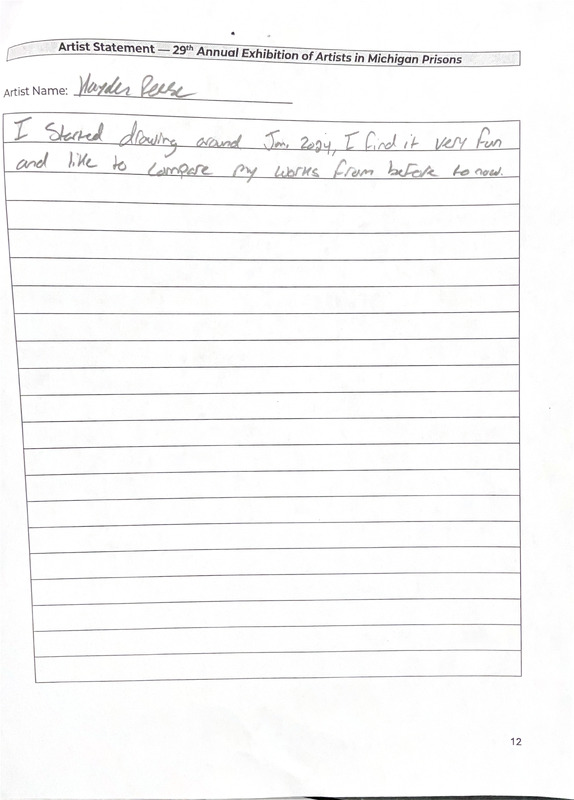 Artist Statement — 29th Annual Exhibition of Artists in Michigan Prisons
Artist Name: Hayden Reese
I Started drawing around Jan. 2024, I find it very fun
and like to compare my works from before to now.
12